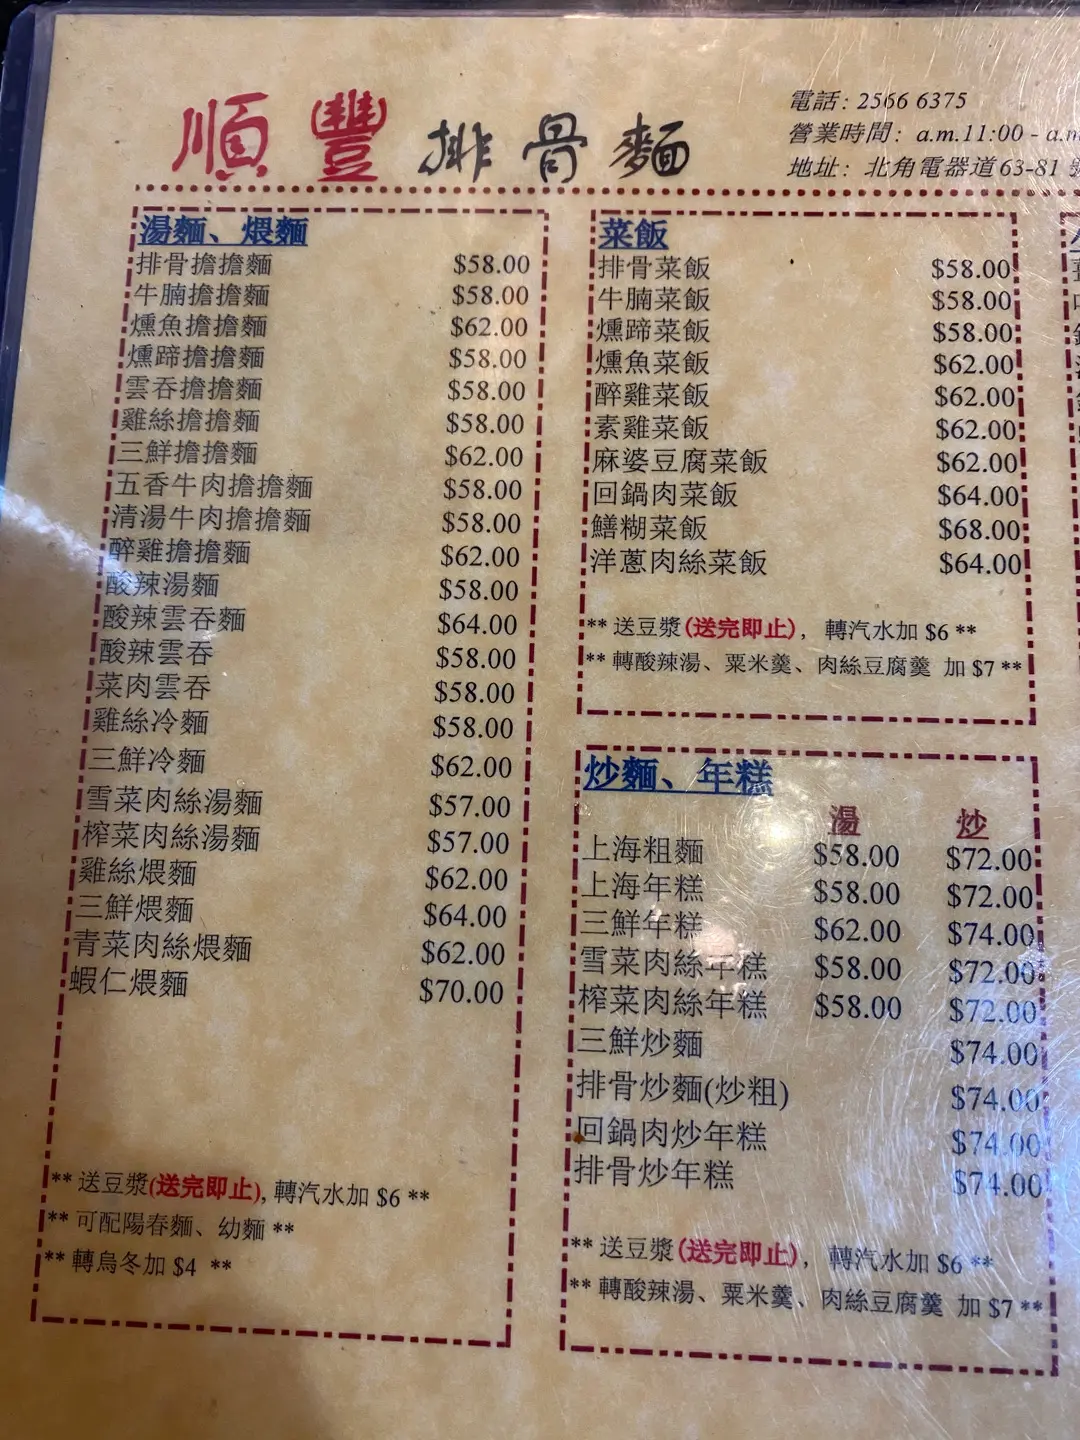 順豐排骨麵
電話: 2566 6375
營業時間: a.m.11:00 - a.m
地址: 北角電器道63-81
湯麵、煨麵
排骨擔擔麵 $58.00
牛腩擔擔麵 $58.00
燻魚擔擔麵 $62.00
燻蹄擔擔麵 $58.00
雲吞擔擔麵 $58.00
雞絲擔擔麵 $58.00
三鮮擔擔麵 $62.00
五香牛肉擔擔麵 $58.00
清湯牛肉擔擔麵 $58.00
醉雞擔擔麵 $62.00
酸辣湯麵 $58.00
酸辣雲吞麵 $64.00
酸辣雲吞 $58.00
菜肉雲吞 $58.00
雞絲冷麵 $58.00
三鮮冷麵 $62.00
雪菜肉絲湯麵 $57.00
榨菜肉絲湯麵 $57.00
雞絲煨麵 $62.00
三鮮煨麵 $64.00
青菜肉絲煨麵 $62.00
蝦仁煨麵 $70.00
** 送豆漿(送完即止), 轉汽水加 $6 **
** 可配陽春麵、幼麵 **
** 轉烏冬加 $4 **
菜飯
排骨菜飯 $58.00
牛腩菜飯 $58.00
燻蹄菜飯 $58.00
燻魚菜飯 $62.00
醉雞菜飯 $62.00
素雞菜飯 $62.00
麻婆豆腐菜飯 $62.00
回鍋肉菜飯 $64.00
鱔糊菜飯 $68.00
洋蔥肉絲菜飯 $64.00
** 送豆漿(送完即止), 轉汽水加 $6 **
** 轉酸辣湯、粟米羹、肉絲豆腐羹 加 $7 **
炒麵、年糕
湯 炒
上海粗麵 $58.00 $72.00
上海年糕 $58.00 $72.00
三鮮年糕 $62.00 $74.00
雪菜肉絲年糕 $58.00 $72.00
榨菜肉絲年糕 $58.00 $72.00
三鮮炒麵 $74.00
排骨炒麵(炒粗) $74.00
回鍋肉炒年糕 $74.00
排骨炒年糕 $74.00
** 送豆漿(送完即止), 轉汽水加 $6 **
** 轉酸辣湯、粟米羹、肉絲豆腐羹 加 $7 **